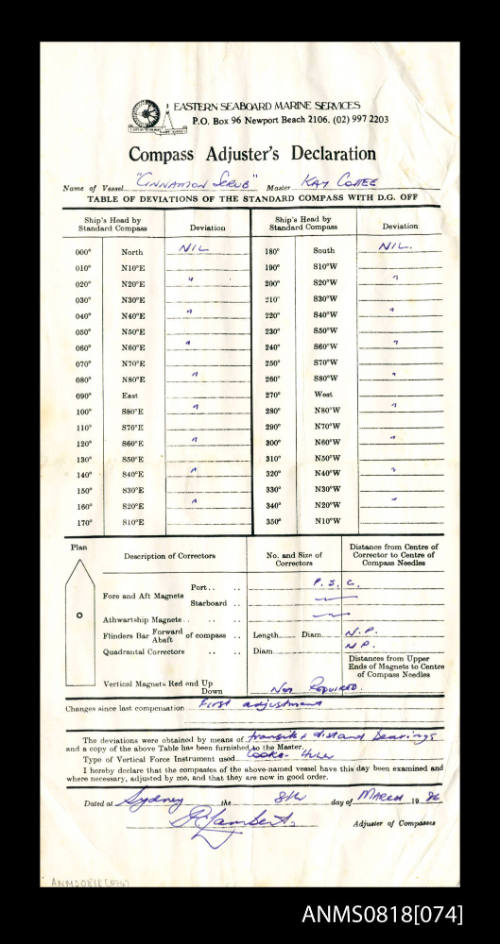 EASTERN SEABOARD MARINE SERVICES
P.O. Box 96 Newport Beach 2106. (02) 997 2203
Compass Adjuster's Declaration
Name of Vessel "Cinnamon Scrub" Master Kay Cottee
TABLE OF DEVIATIONS OF THE STANDARD COMPASS WITH D.G. OFF
Ship's Head by Standard Compass Deviation Ship's Head by Standard Compass Deviation
000° North NIL 180° South NIL.
010° N10°E 190° S10°W
020° N20°E " 200° S20°W "
030° N30°E 210° S30°W
040° N40°E " 220° S40°W "
050° N50°E 230° S50°W
060° N60°E " 240° S60°W "
070° N70°E 250° S70°W
080° N80°E " 260° S80°W "
090° East 270° West
100° S80°E " 280° N80°W "
110° S70°E 290° N70°W
120° S60°E " 300° N60°W "
130° S50°E 310° N50°W
140° S40°E " 320° N40°W "
150° S30°E 330° N30°W
160° S20°E " 340° N20°W "
170° S10°E 350° N10°W
Plan
Description of Correctors No. and Size of Correctors Distance from Centre of Corrector to Centre of Compass Needles
Fore and Aft Magnets Port.. .. P. S. C.
Starboard .. ..
Athwartship Magnets .. .. ..
Flinders Bar Forward Abaft of compass .. Length Diam. N.P.
Quadrantal Correctors .. .. Diam. N.P.
Distances from Upper Ends of Magnets to Centre of Compass Needles
Vertical Magnets Red end Up Down Not Required.
Changes since last compensation First adjustment
The deviations were obtained by means of transits & distant bearings
and a copy of the above Table has been furnished to the Master.
Type of Vertical Force Instrument used
I hereby declare that the compasses of the above-named vessel have this day been examined and
where necessary, adjusted by me, and that they are now in good order.
Dated at Sydney the 8th day of March 19 86
Lambert Adjuster of Compasses
ANMS0818[074]
ANMS0818[074]